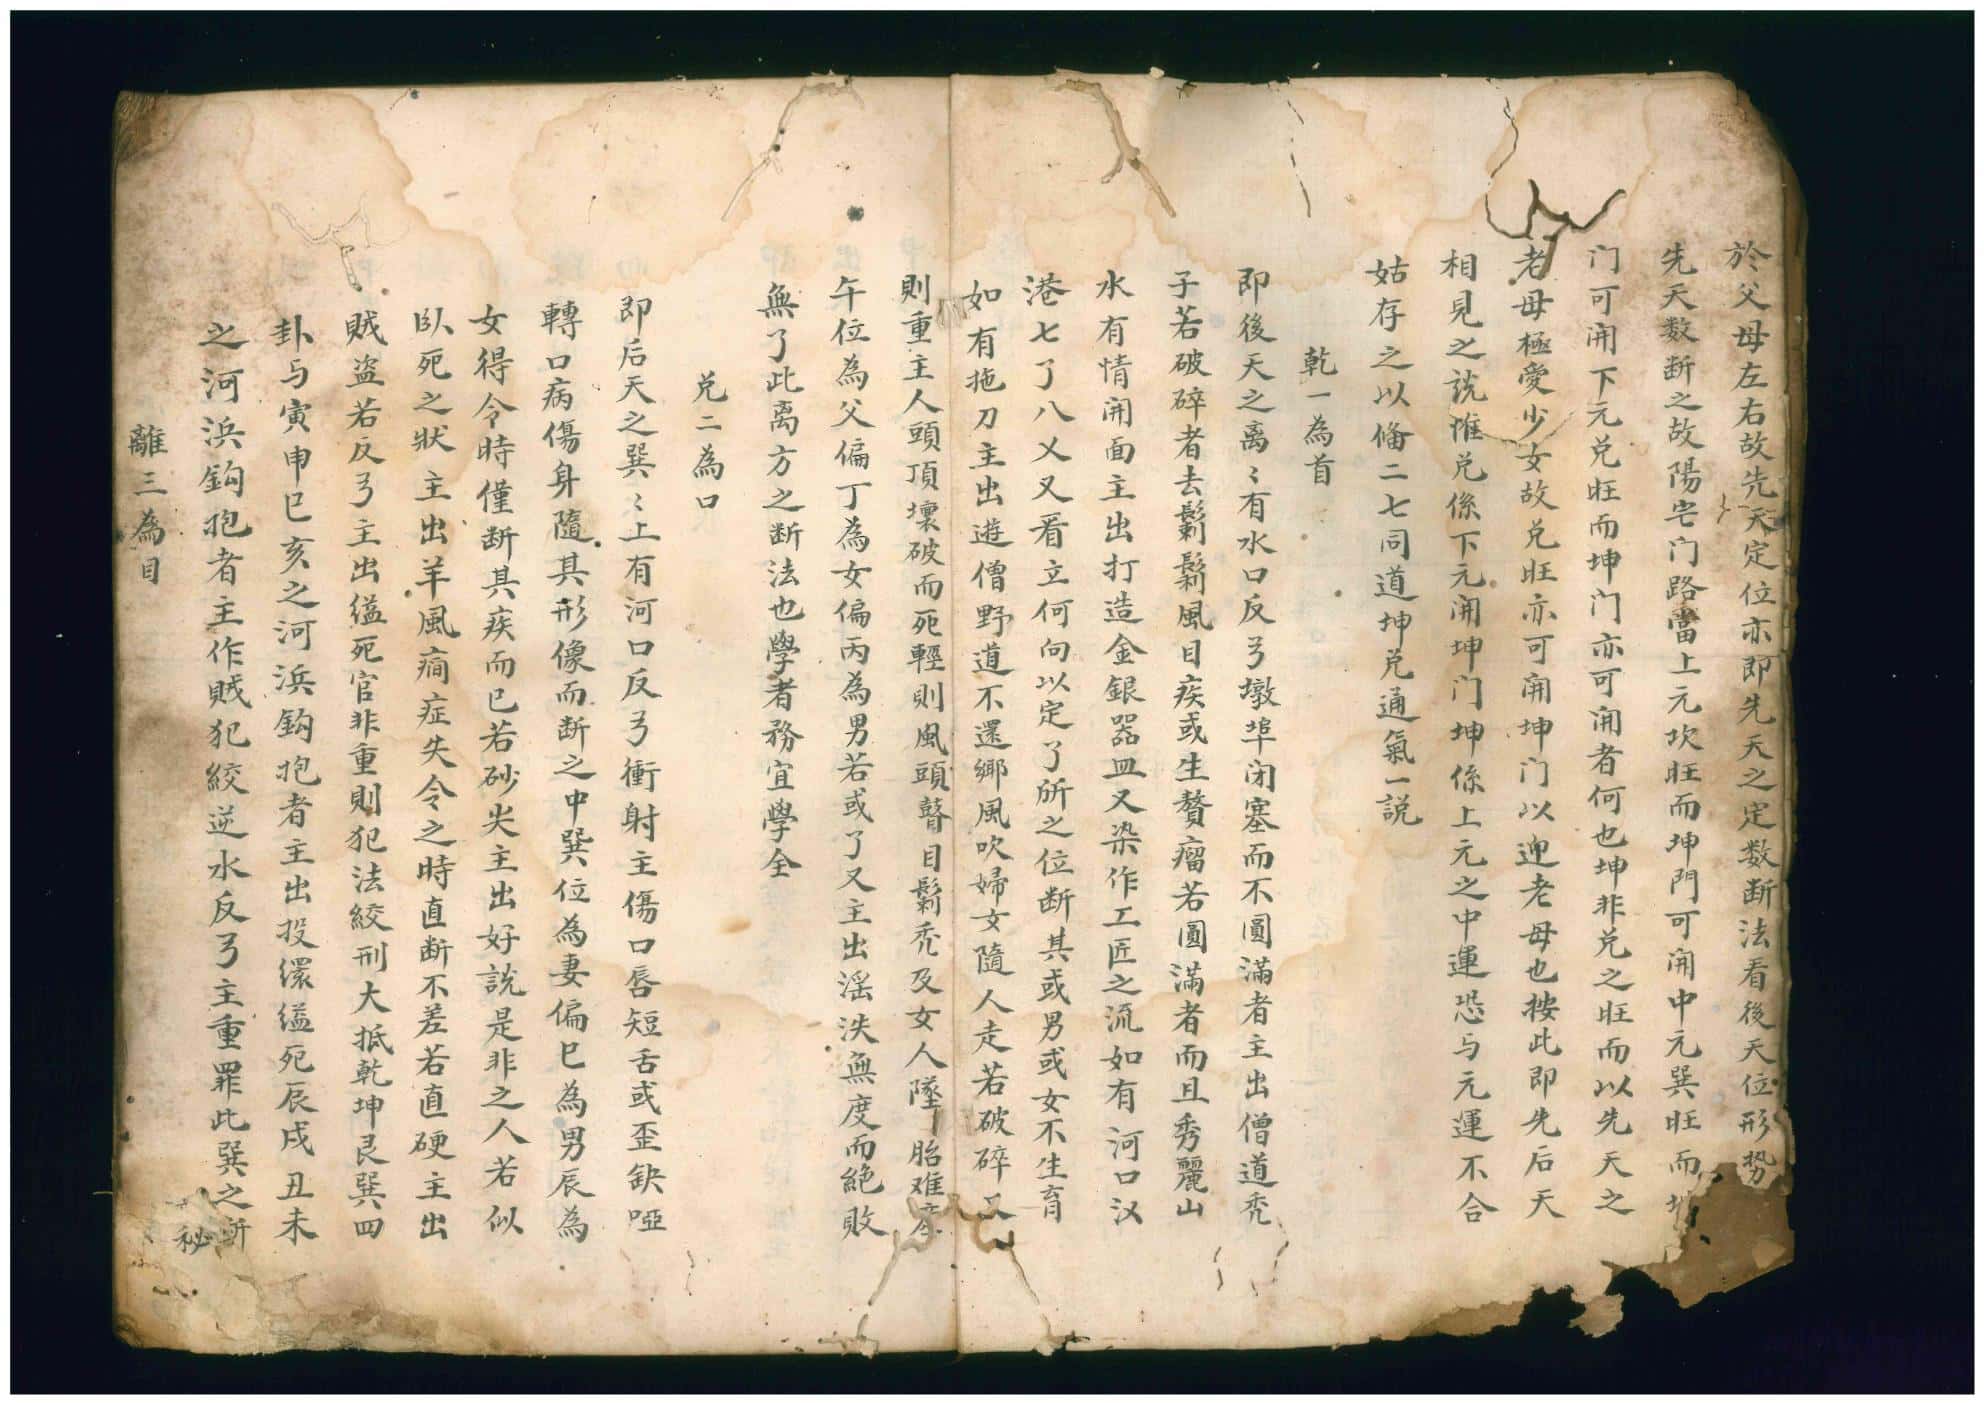 於父母左右故先天定位亦即先天之定数断法看後天位形势
先天数断之故陽宅门路當上元坎旺而坤門可開中元巽旺而
门可開下元兑旺而坤门亦可開者何也坤非兑之旺而以先天之
老母極愛少女故兑旺亦可開坤门以迎老母也按此即先后天
相見之説惟兑係下元開坤门坤係上元之中運恐与元運不合
姑存之以俻二七同道坤兑通氣一説
乾一為首
即後天之离〻有水口反弓墩埠闭塞而不圓滿者主出僧道秃
子若破碎者去鬎鬁風目疾或生贅瘤若圓滿者而且秀麗山
水有情開面主出打造金銀器皿又染作工匠之流如有河口汉
港七了八乂又看立何向以定了所之位断其或男或女不生育
如有拖刀主出遊僧野道不還鄉風吹婦女隨人走若破碎又
則重主人頭頂壞破而死輕則風頭瞽目鬎秃及女人墜胎难産
午位為父偏丁為女偏丙為男若或了又主出滛泆無度而絶敗
無了此离方之断法也學者務宜學全
兑二為口
即后天之巽〻上有河口反弓衝射主傷口唇短舌或歪缺啞
轉口病傷身隨其形像而断之中巽位為妻偏巳為男辰為
女得令時僅断其疾而已若砂尖主出好説是非之人若似
臥死之狀主出羊風癎症失令之時直断不差若直硬主出
賊盗若反弓主出缢死官非重則犯法絞刑大抵乾坤艮巽四
卦与寅申巳亥之河浜鈎抱者主出投缳缢死辰戌丑未
之河浜鈎抱者主作賊犯絞逆水反弓主重罪此巽之断
秘
離三為目